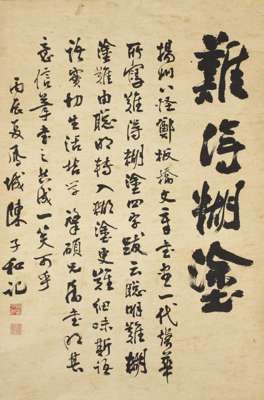 難得糊塗
揚州八怪鄭板橋文章書畫一代燦華
所寫難得糊塗四字跋云聰明難糊
塗難由聰明轉入糊塗更難細味斯語
語實切生活哲學
意信筆書之共成一笑可乎
丙辰夏鳳城陳子和記